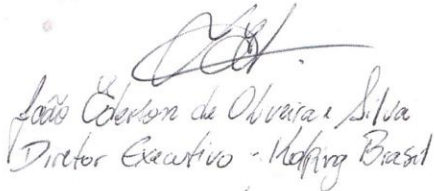 João Ederson de Oliveira e Silva
Diretor Executivo - Kolping Brasil